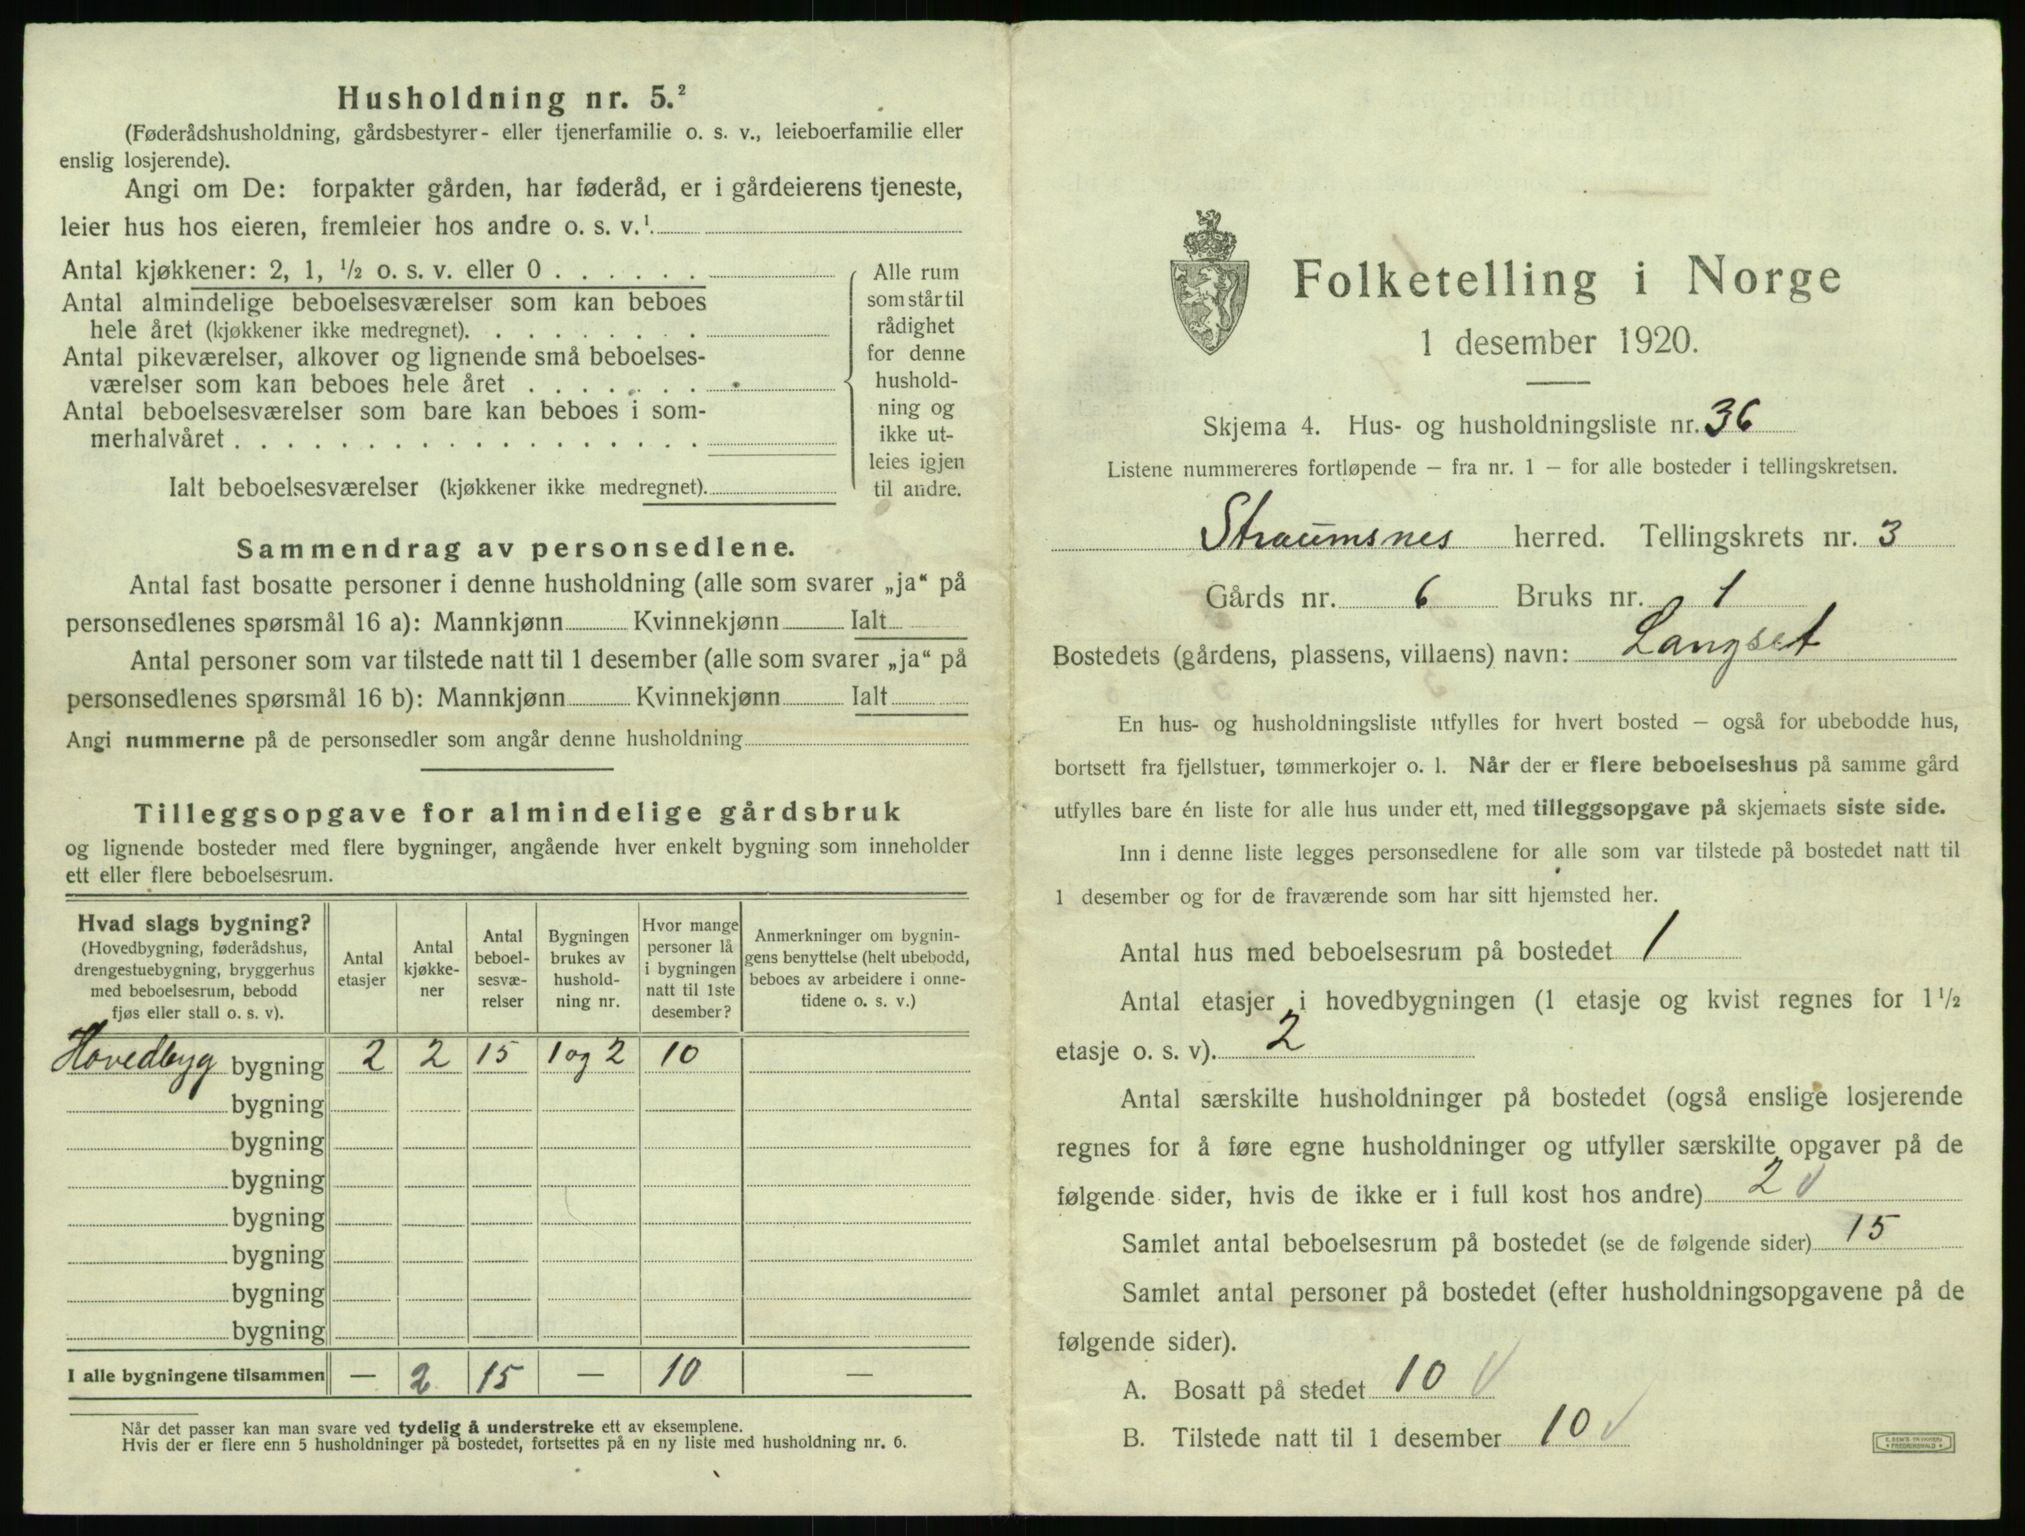 Husholdning nr. 5.²
(Føderådshusholdning, gårdsbestyrer- eller tjenerfamilie o. s. v., leieboerfamilie eller
enslig losjerende).
Angi om De: forpakter gården, har føderåd, er i gårdeierens tjeneste,
leier hus hos eieren, fremleier hos andre o. s. v.¹
Antal kjøkkener: 2, 1, ½ o. s. v. eller 0 . . . . . .
Antal almindelige beboelsesværelser som kan beboes
hele året (kjøkkener ikke medregnet). . . . . . . . .
Antal pikeværelser, alkover og lignende små beboelses-
værelser som kan beboes hele året . . . . . . .
Antal beboelsesværelser som bare kan beboes i som-
merhalvåret . . . . . . . . . . . . . . . . . .
Ialt beboelsesværelser (kjøkkener ikke medregnet).
Alle rum
som står til
rådighet
for denne
hushold-
ning og
ikke ut-
leies igjen
til andre.
Sammendrag av personsedlene.
Antal fast bosatte personer i denne husholdning (alle som svarer „ja“ på
personsedlenes spørsmål 16 a): Mannkjønn Kvinnekjønn Ialt
Antal personer som var tilstede natt til 1 desember (alle som svarer „ja“ på
personsedlenes spørsmål 16 b): Mannkjønn Kvinnekjønn Ialt
Angi nummerne på de personsedler som angår denne husholdning
Tilleggsopgave for almindelige gårdsbruk
og lignende bosteder med flere bygninger, angående hver enkelt bygning som inneholder
ett eller flere beboelsesrum.
Hvad slags bygning?
(Hovedbygning, føderådshus,
drengestuebygning, bryggerhus
med beboelsesrum, bebodd
fjøs eller stall o. s. v).
Antal
etasjer
Antal
kjøkke-
ner
Antal
beboel-
sesvæ-
relser
Bygningen
brukes av
hushold-
ning nr.
Hvor mange
personer lå
i bygningen
natt til 1ste
desember?
Anmerkninger om bygnin-
gens benyttelse (helt ubebodd,
beboes av arbeidere i onne-
tidene o. s. v.)
Hovedbyg bygning 2 2 15 1 og 2 10
bygning
bygning
bygning
bygning
bygning
bygning
bygning
I alle bygningene tilsammen — 2 15 — 10 —
Når det passer kan man svare ved tydelig å understreke ett av eksemplene.
Hvis der er flere enn 5 husholdninger på bostedet, fortsettes på en ny liste med husholdning nr. 6.
Folketelling i Norge
1 desember 1920.
Skjema 4. Hus- og husholdningsliste nr. 36
Listene nummereres fortløpende — fra nr. 1 — for alle bosteder i tellingskretsen.
Straumsnes herred. Tellingskrets nr. 3
Gårds nr. 6 Bruks nr. 1
Bostedets (gårdens, plassens, villaens) navn: Langset
En hus- og husholdningsliste utfylles for hvert bosted — også for ubebodde hus,
bortsett fra fjellstuer, tømmerkojer o. l. Når der er flere beboelseshus på samme gård
utfylles bare én liste for alle hus under ett, med tilleggsopgave på skjemaets siste side.
Inn i denne liste legges personsedlene for alle som var tilstede på bostedet natt til
1 desember og for de fraværende som har sitt hjemsted her.
Antal hus med beboelsesrum på bostedet 1
Antal etasjer i hovedbygningen (1 etasje og kvist regnes for 1½
etasje o. s. v). 2
Antal særskilte husholdninger på bostedet (også enslige losjerende
regnes for å føre egne husholdninger og utfyller særskilte opgaver på de
følgende sider, hvis de ikke er i full kost hos andre) 2
Samlet antal beboelsesrum på bostedet (se de følgende sider) 15
Samlet antal personer på bostedet (efter husholdningsopgavene på de
følgende sider).
A. Bosatt på stedet 10
B. Tilstede natt til 1 desember 10
E. SEM'S TRYKKERI
FREDRIKSHALD